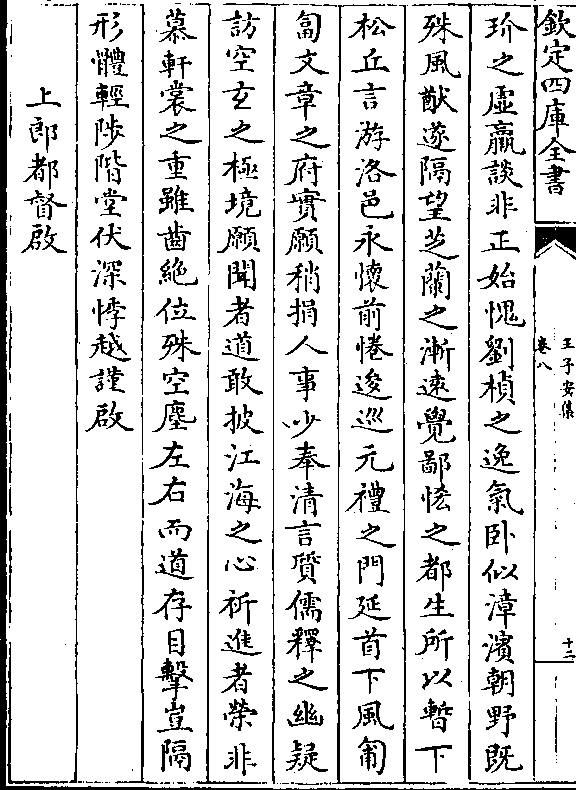 欽定四庫全書
王子安集
卷八
十二
玠之虛羸談非正始愧劉楨之逸氣卧似漳濱朝野既
殊風猷遂隔望芝蘭之漸遠覺鄙恡之都生所以暫下
松丘言游洛邑永懷前惓逡巡元禮之門延首下風匍
匐文章之府實願稍捐人事少奉清言質儒釋之幽疑
訪空玄之極境願聞者道敢披江海之心祈進者榮非
慕軒裳之重雖齒絶位殊空塵左右而道存目擊豈隔
形體輕陟階堂伏深悸越謹啟
上郎都督啟